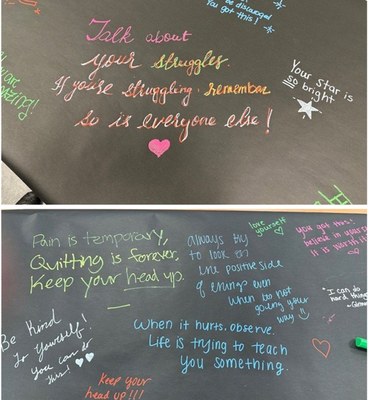 be discouraged
You got this!
Talk about
your struggles.
If you're struggling, remember
so is everyone else!
Your star is
so bright
Pain is temporary,
Quitting is forever,
Keep your head up.
always try
to look on
the positive side
of things even
when its not
going your
way
love
yourself
you got this.
believe in yourself
it is worth it
"I can do
hard things"
Be Kind
to Yourself!
You can do
this!
When it hurts, observe.
Life is trying to teach
you something.
Keep your
head up!!!